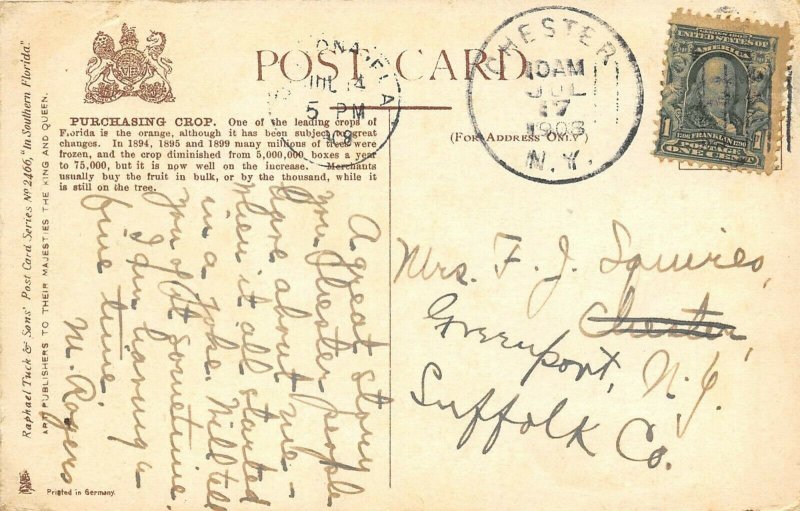 POST CARD
(FOR ADDRESS ONLY)
PURCHASING CROP. One of the leading crops of
Florida is the orange, although it has been subject to great
changes. In 1894, 1895 and 1899 many millions of trees were
frozen, and the crop diminished from 5,000,000 boxes a year
to 75,000, but it is now well on the increase. Merchants
usually buy the fruit in bulk, or by the thousand, while it
is still on the tree.
A great story
you Chester people
have about me -
when it all started
in a joke. Will tell
you of it sometime.
I am having a
fine time.
M. Rogers
Raphael Tuck & Sons' Post Card Series No 2466, "In Southern Florida."
ART PUBLISHERS TO THEIR MAJESTIES THE KING AND QUEEN.
Printed in Germany.
ONA, FLA
JUL 14
5 PM
CHESTER
10 AM
JUL
17
N.Y.
SERIES 1902
UNITED STATES OF
AMERICA
FRANKLIN
1 1
POSTAGE
ONE CENT
Mrs. F. J. Squires,
Chester,
Greenport, N.Y.
Suffolk Co.